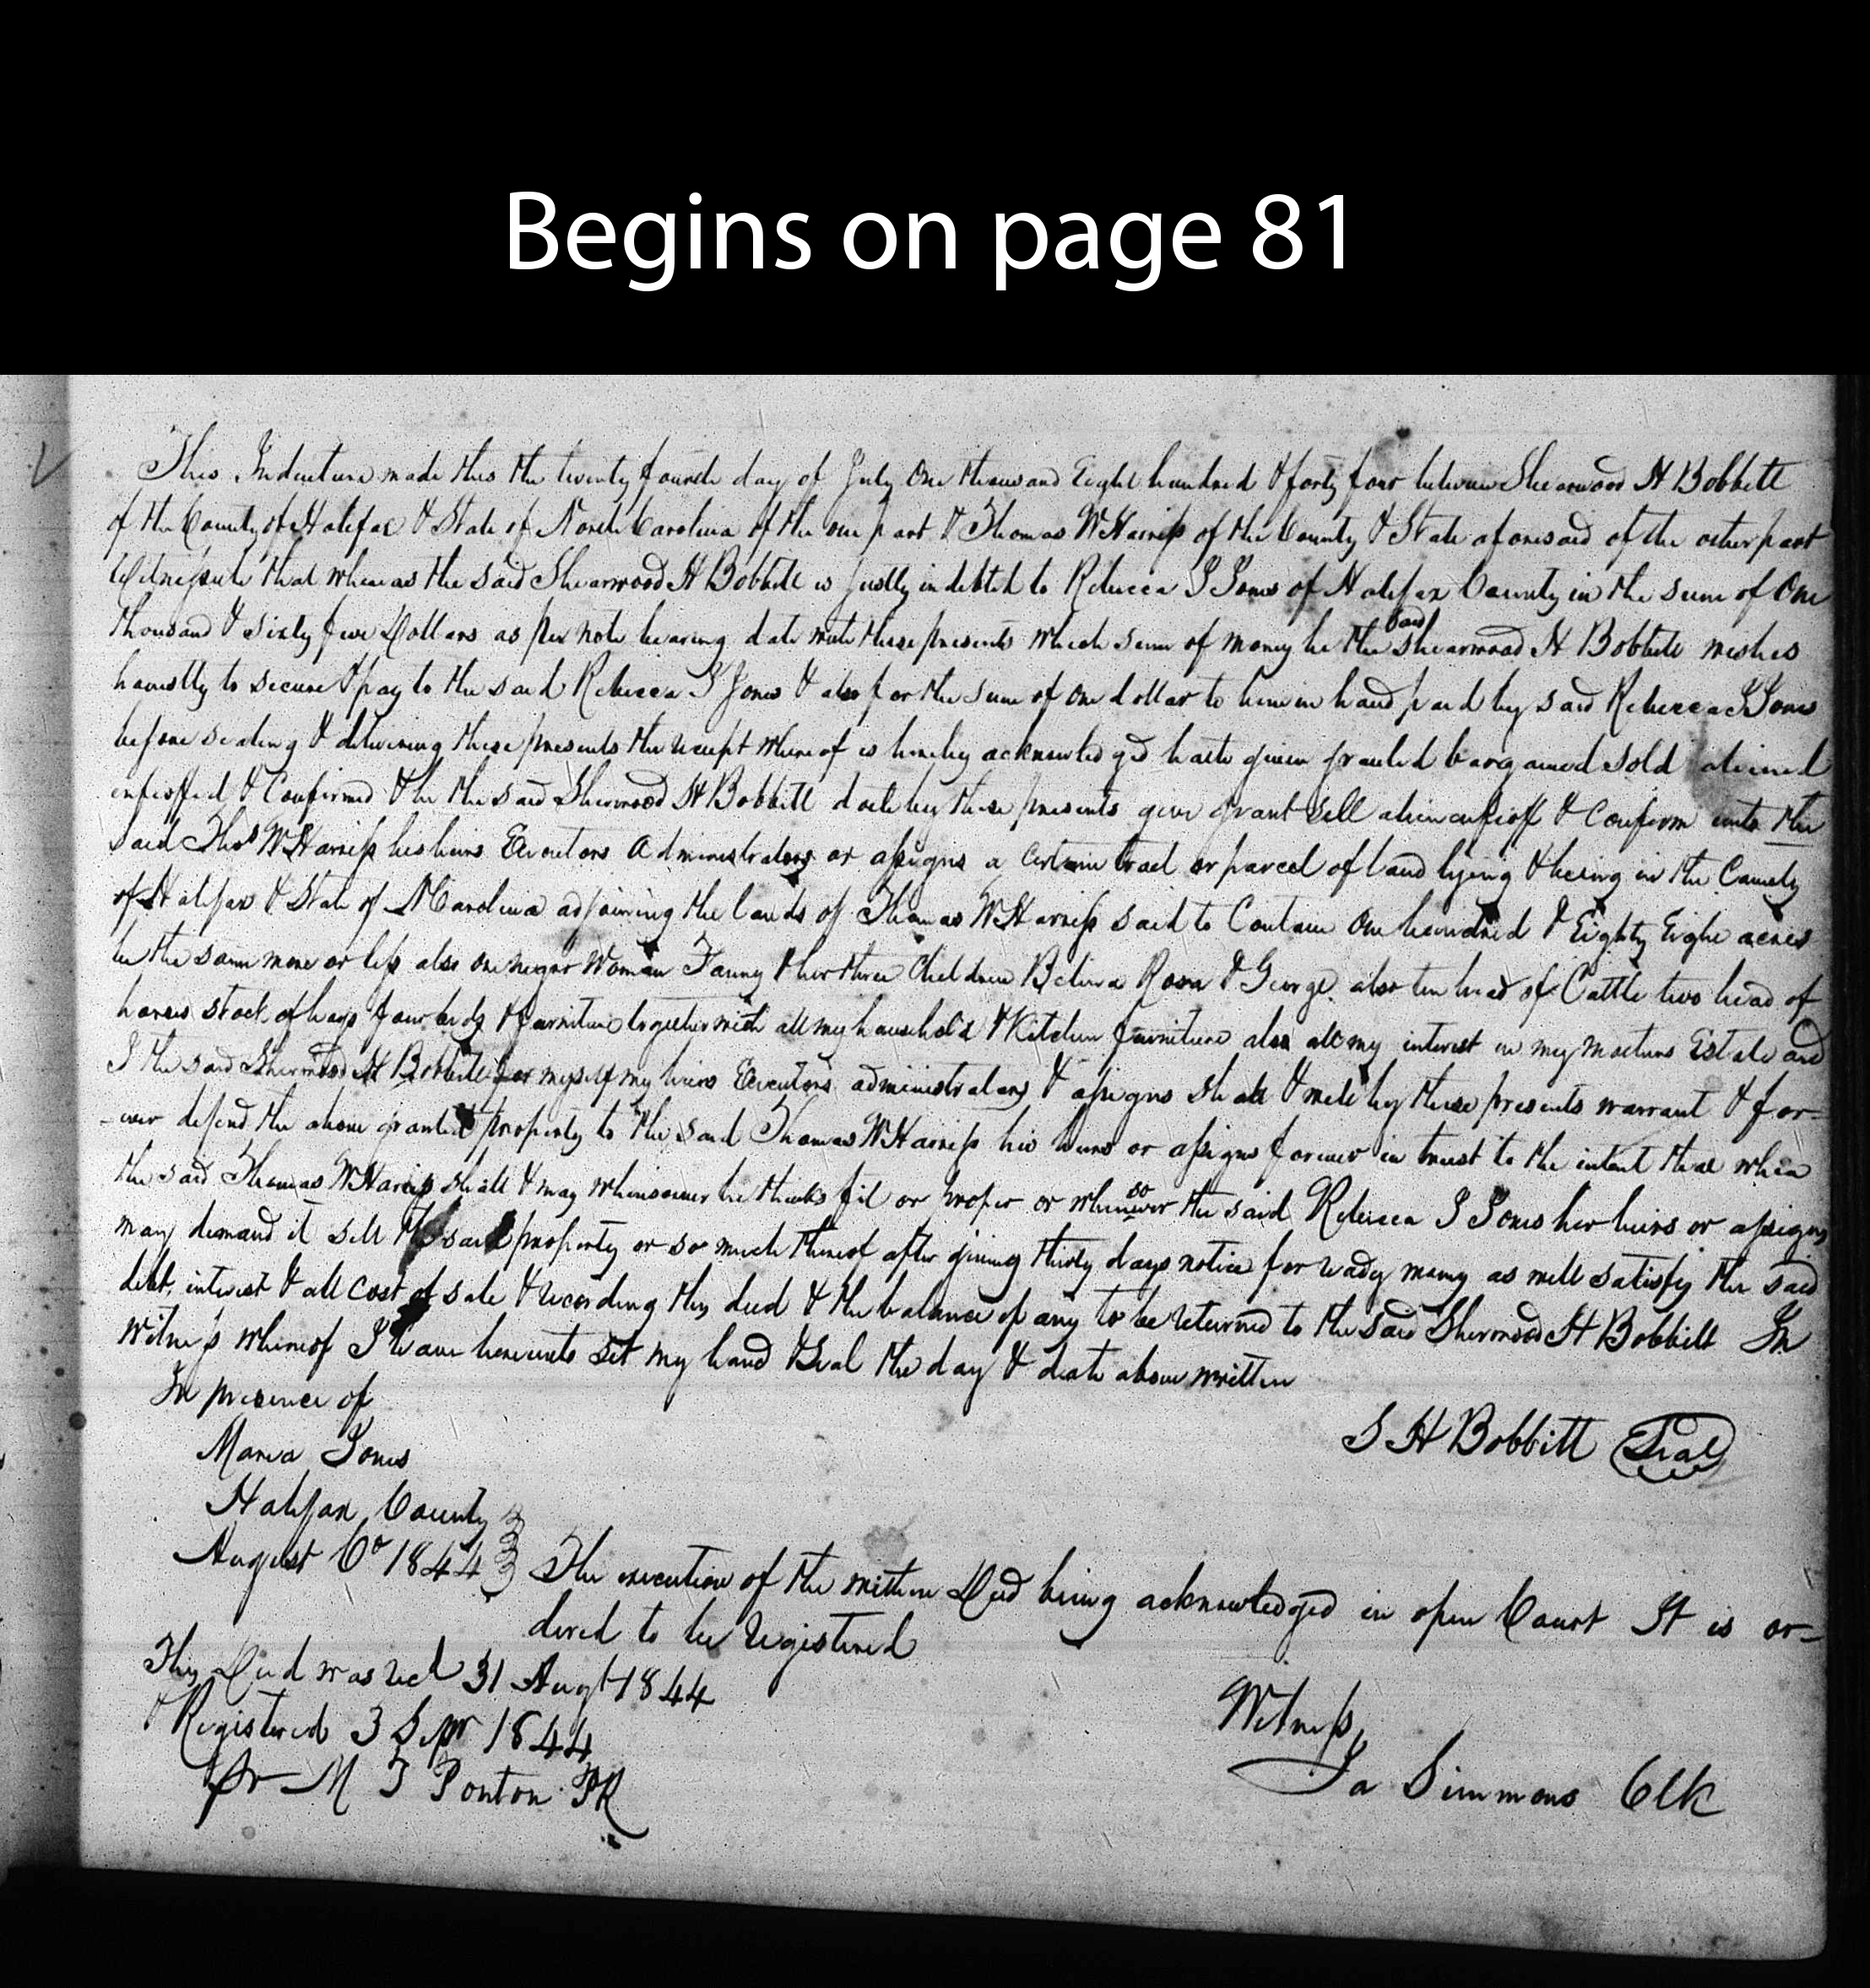 Begins on page 81
This Indenture made this the twenty fourth day of July One thousand Eight hundred & forty four between Shearwood H Bobbitt
of the County of Halifax & State of North Carolina of the one part & Thomas W Harriss of the County & State aforesaid of the other part
Witnesseth that whereas the said Shearwood H Bobbitt is justly indebted to Rebecca S Jones of Halifax County in the sum of One
thousand & Sixty five Dollars as per note bearing date with these presents which sum of money he the said Shearwood H Bobbitt wishes
honestly to secure & pay to the said Rebecca S Jones & also for the sum of one dollar to him in hand paid by said Rebecca S Jones
before sealing & delivering these presents the receipt whereof is hereby acknowledged hath given granted bargained sold aliened
enfeoffed & Confirmed & he the said Sherwood H Bobbitt doth by these presents give grant sell alien enfeoff & Confirm unto the
said Thos W Harriss his heirs Executors Administrators or assigns a certain tract or parcel of land lying & being in the County
of Halifax & State of N Carolina adjoining the lands of Thomas W Harriss said to Contain One hundred & Eighty Eight acres
be the same more or less also one negro Woman Fanny & her three Children Belina Rosa & George also ten head of Cattle two head of
horses stock of hogs four beds & furniture together with all my household & Kitchen furniture also all my interest in my mothers Estate and
I the said Sherwood H Bobbitt for myself my heirs Executors administrators & assigns shall & will by these presents warrant & for-
-ever defend the above granted property to the said Thomas W Harriss his heirs or assigns forever in trust to the intent that when
the said Thomas W Harriss shall & may whensoever he thinks fit or proper or whensoever the said Rebecca S Jones her heirs or assigns
may demand it sell the said property or so much thereof after giving thirty days notice for ready money as will satisfy the said
debt, interest & all cost of sale & recording this deed & the balance if any to be returned to the said Sherwood H Bobbitt In
Witness whereof I have hereunto set my hand & Seal the day & date above written
In presence of
S H Bobbitt Seal
Maria Jones
Halifax County
August Co 1844
The execution of the within Deed being acknowledged in open Court It is or-
dered to be Registered
This Deed was recd 31 Augt 1844
& Registered 3 Sepr 1844
pr M T Ponton PR
Witness
Ja Simmons Clk